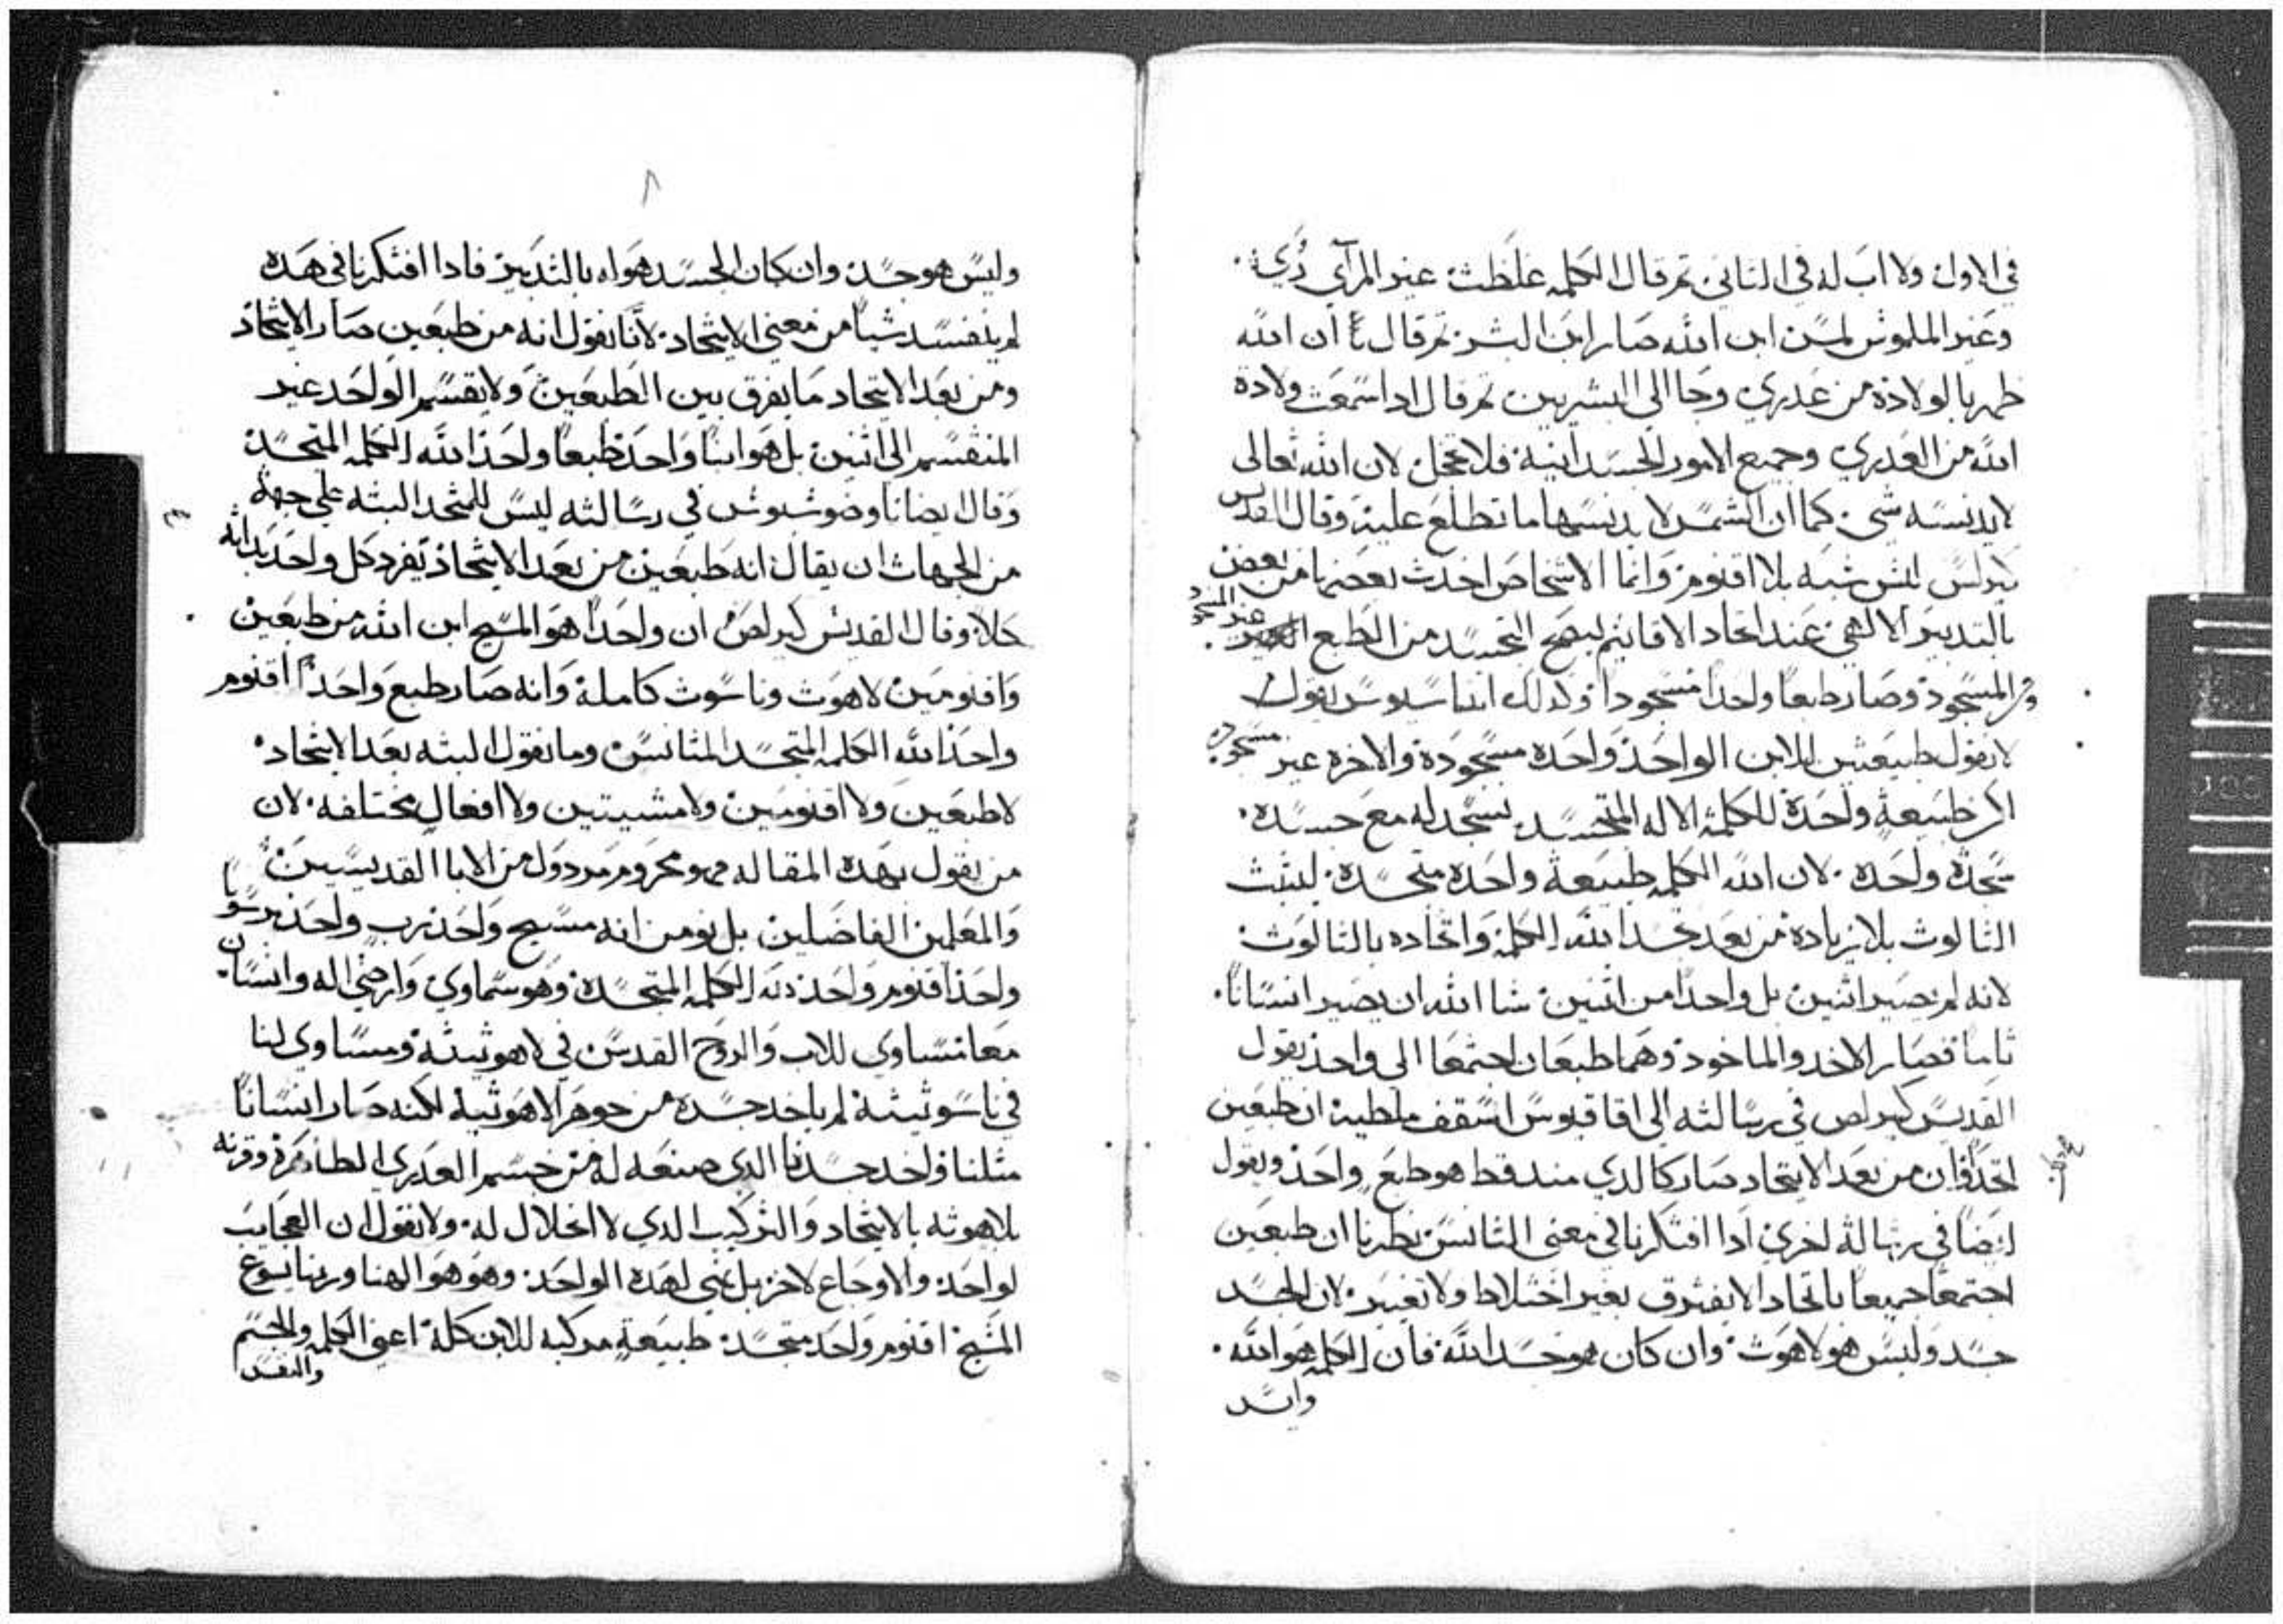 في الاول ولا اب له في الثاني ثم قال الكلمه غلظت غير المرآي رُي
وغير الملموس لمس ابن الله صار ابن البشر ثم قال ان الله
ظهر بالولادة من عدري وجا الي البشريين ثم قال اداسمعت ولادة
الله من العدري وجميع الامور الجسدانية فلا تخجل لان الله تعالى
لايدنسه شي كما ان الشمس لا يدنسها ما تطلع عليه وقال القديس
كيرلس ليس شبه بلا اقنوم وانما الاشخاص اخدت بعضها من بعض
بالتدبير الالهي عند اتحاد الاقانيم ليصح التجسد من الطبع غير المسجود
والمسجود وصار طبعا واحدا مسجودا وكدلك اتناسيوس يقول
لا نقول طبيعتين للابن الواحد واحده مسجودة والاخره غير مسجوده
لاكن طبيعة واحدة للكلمة الاله المتجسد نسجد له مع جسده
سجدة واحده لان الله الكلمه طبيعة واحده متجسده ليثبت
الثالوت بلا زيادة من بعد تجسد الله الكلمة واتحاده بالثالوت
لانه لم يصير اثنين بل واحدا من اثنين شا الله ان يصير انسانا
تاما فصار الاخد والماخود وهما طبعان اجتمعا الى واحد يقول
القديس كيرلص في رسالته الي اقاقيوس اسقف ملطية ان طبعين
اتحدا وان من بعد الاتحاد صار كالدي مند قط هو طبع واحد ويقول
ايضا في رسالة اخري ادا افتكرنا في معنى التانس نظرنا ان طبعين
اجتمعا جميعا باتحاد لا يفترق بغير اختلاط ولا تغيير لان الجسد
جسد وليس هو لاهوت وان كان هو جسد الله فان الكلمه هو الله
وليس
٨
وليس هو جسد وان كان الجسد هواه بالتدبير فادا افتكرنا في هده
لم ينفسد شيا من معني الاتحاد لانا نقول انه من طبعين صار الاتحاد
ومن بعد الاتحاد ما يفرق بين الطبعين ولا يقسم الواحد غير
المنقسم الى اتنين بل هو ابنا واحد طبعا واحد الله الكلمه المتجسد
وقال ايضا تاوضوسيوس في رسالته ليس للمتحد البته علي جهة
من الجهات ان يقال انه طبعين من بعد الاتحاد تفرد كل واحد بداته
كلا وقال القديس كيرلص ان واحدا هو المسيح ابن الله من طبعين
واقنومين لاهوت وناسوت كاملة وانه صار طبع واحد اقنوم
واحد الله الكلمه المتجسد المتانس وما نقول البته بعد الاتحاد
لا طبعين ولا اقنومين ولا مشيتين ولا افعال مختلفه لان
من يقول بهده المقاله فهو محروم مردول من الابا القديسين
والمعلمين الفاضلين بل نومن انه مسيح واحد رب واحد برسوبا
واحد اقنوم واحد لله الكلمه المتجسدة وهو سماوي وارضي اله وانسان
معا متساوي للاب والروح القدس في لاهوتيته ومساوي لنا
في ناسوتيته لم ياخد جسده من جوهر لاهوتيه لكنه صار انسانا
مثلنا واخد جسدنا الدي صنعه له من جسم العدري الطاهرة وقرنه
بلاهوته بالاتحاد والتركيب الدي لا انحلال له ولا نقول ان العجايب
لواحد والاوجاع لاخر بل نعني لهده الواحد وهو هو الهنا وربنا يسوع
المسيح اقنوم واحد متجسد طبيعة مركبه للابن كلة اعني الكلمه والجسم
والنفس